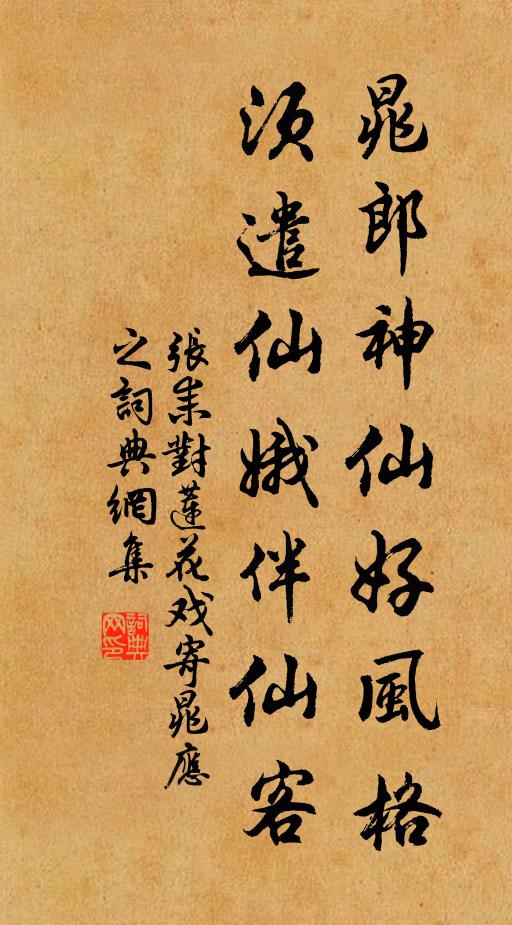 晁郎神仙好風格
須遣仙娥伴仙客
張耒對蓮花戏寄晁應
之詞典網集
詞典网印